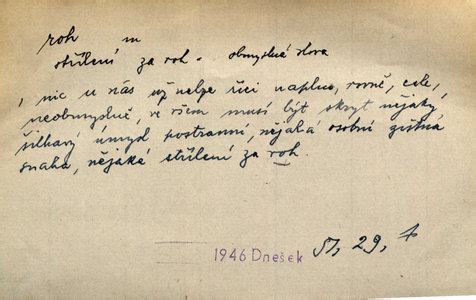 roh m
střílení za roh - obmyslné slova
, nic u nás už nelze říci naplno, rovně, cele,
neobmyslně, ve všem musí být skryt nějaký
šilhavý úmysl postranní, nějaká osobní zištná
snaha, nějaké střílení za roh.
1946 Dnešek 51, 29,